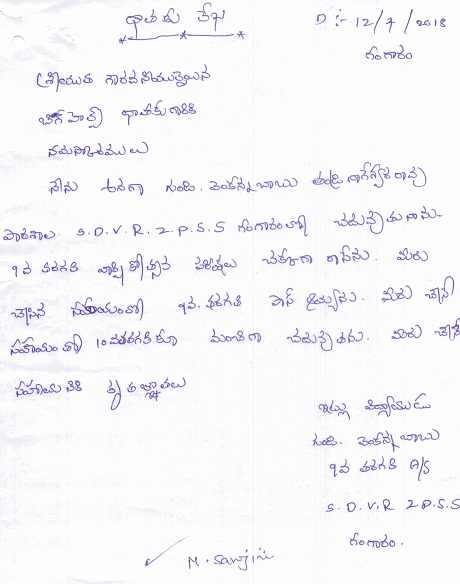 ధాతకు లేఖ
D :- 12/7/2018
గంగారం
శ్రీయుత గౌరవనీయులైన
బిగ్ హెల్ప్ ధాతకు గారికి
నమస్కారములు
నేను అనగా గుండి. వెంకన్నబాబు తండ్రి నాగేశ్వరరావు
పాఠశాల S.D.V.R.Z.P.S.S గంగారంలో చదువుతున్నాను.
9వ తరగతి వార్షికోత్సవ పరీక్షలు చక్కగా రాసేను. మీరు
చేసిన సహాయంతో 9వ. తరగతి పాస్ అయ్యాను. మీరు చేసే
సహాయంతో 10వతరగతి కూ మంచిగా చదువుతను. మీరు చేసే
సహాయనికి కృతజ్ఞాతలు
ఇట్లు విద్యాయుడు
గుండి. వెంకన్న బాబు
9వ తరగతి A/S
S. D. V. R Z P. S S
గంగారం.
M. Sanjini